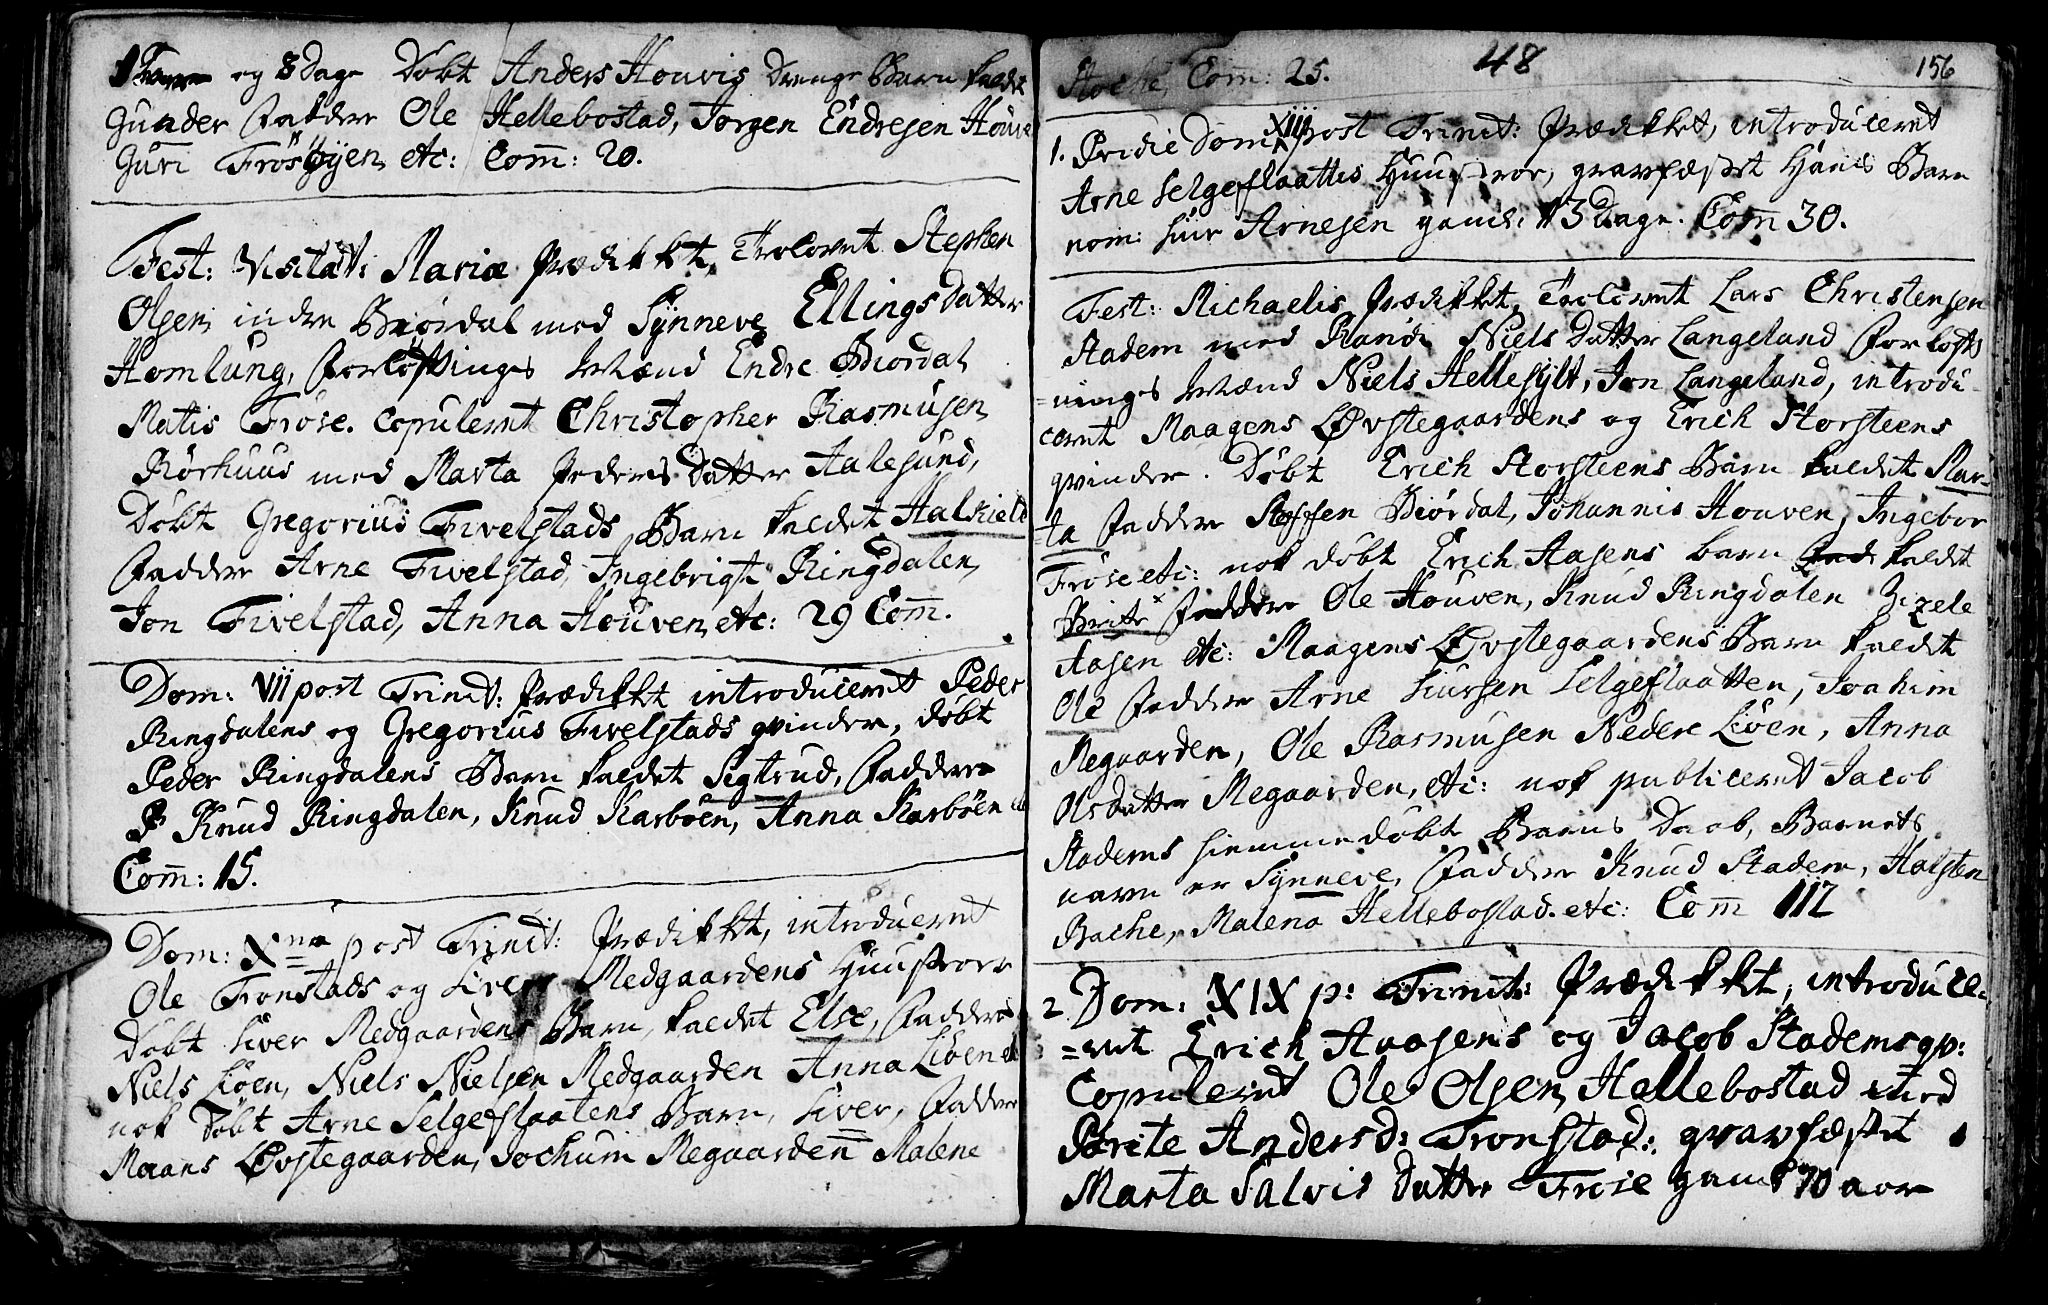 og 8 Dage Døbt Anders Houvis Drenge Barn kaldt
Gunder Faddere Ole Hellebostad, Jørgen Endresen Houve
Guri Frösöyen etc: Com̅: 20.
Fest: Visitat: Mariæ Prædikket, Trolovet Stephen
Olsen indre Biørdal med Synneve Ellings Datter
Homlung, Forløftninges Mænd Endre Biordal
Matis Frøse. Copuleret Christopher Rasmusen
Rörhuus med Marta Peders Datter Aalesund,
Døbt Gregorius Fivelstads Barn kaldet Halkield
Faddere Arne Fivelstad, Ingebrigt Ringdalen,
Jon Fivelstad, Anna Houven, etc: 29 Com̅.
Dom: VII post Trinit: Prædikket introduceret Peder
Ringdalens og Gregorius Fivelstads qvinder, døbt
Peder Ringdalens Barn kaldet Sigtrud, Faddere
Knud Ringdalen, Knud Karbøen, Anna Karbøen etc
Com̅: 15.
Dom: X post Trinit: Prædikket, introduceret
Ole Tronstads og Siver Medgaardens Huustroer
Døbt Siver Medgaardens Barn, kaldet Else, Faddere
Niels Liøen, Niels Nielsen Medgaarden Anna Liøen etc
nok Døbt Arne Selgeflaatens Barn, Siver, Faddere
Maans Øvstegaarden, Jochum Megaarden Malene
48
156
Com̅: 25.
1. Pridie Dom XIII post Trinit: Prædikket, introduceret
Arne Selgeflaattes Huustroe, gravfæstet Hans Barn
nom: Siur Arnesen gaml: 13 Dage. Com̅ 30.
Fest: Michaelis Prædikket, Trolovet Lars Christensen
Stadem med Randi Niels Datter Langeland Forløft
=ninges Mænd Niels Hellesylt, Jon Langeland, introdu-
ceret Maagens Øvstegaardens og Erich Storsteens
qvinder. Døbt Erich Storsteens Barn kaldet Mar-
ta Faddere Steffen Biørdal, Johannis Houven, Ingebor
Frøse etc: nok døbt Erich Aasens barn kaldet
Brite Faddere Ole Houven, Knud Ringdalen Zizele
Aasen etc: Maagens Øvstegaardens Barn kaldet
Ole Faddere Arne Siursen Selgeflaatten, Joahim
Megaarden, Ole Rasmusen Nedere Liøen, Anna
Olsdatter Megaarden, etc: nok publiceret Jacob
Stadems hiemmedøbt Barns Daab, Barnets
navn er Synneve, Faddere Knud Stadem, Halsten
Bache, Malena Hellebostad. etc: Com̅ 112
2 Dom: XIX p: Trinit: Prædikket, introduce-
=ret Erich Aasens og Jacob Stadems qv:
Copuleret Ole Olsen Hellebostad med
Brite Andersd: Tronstad: gravfæstet
Marta Salvis Datter Frøse gaml 70 aar